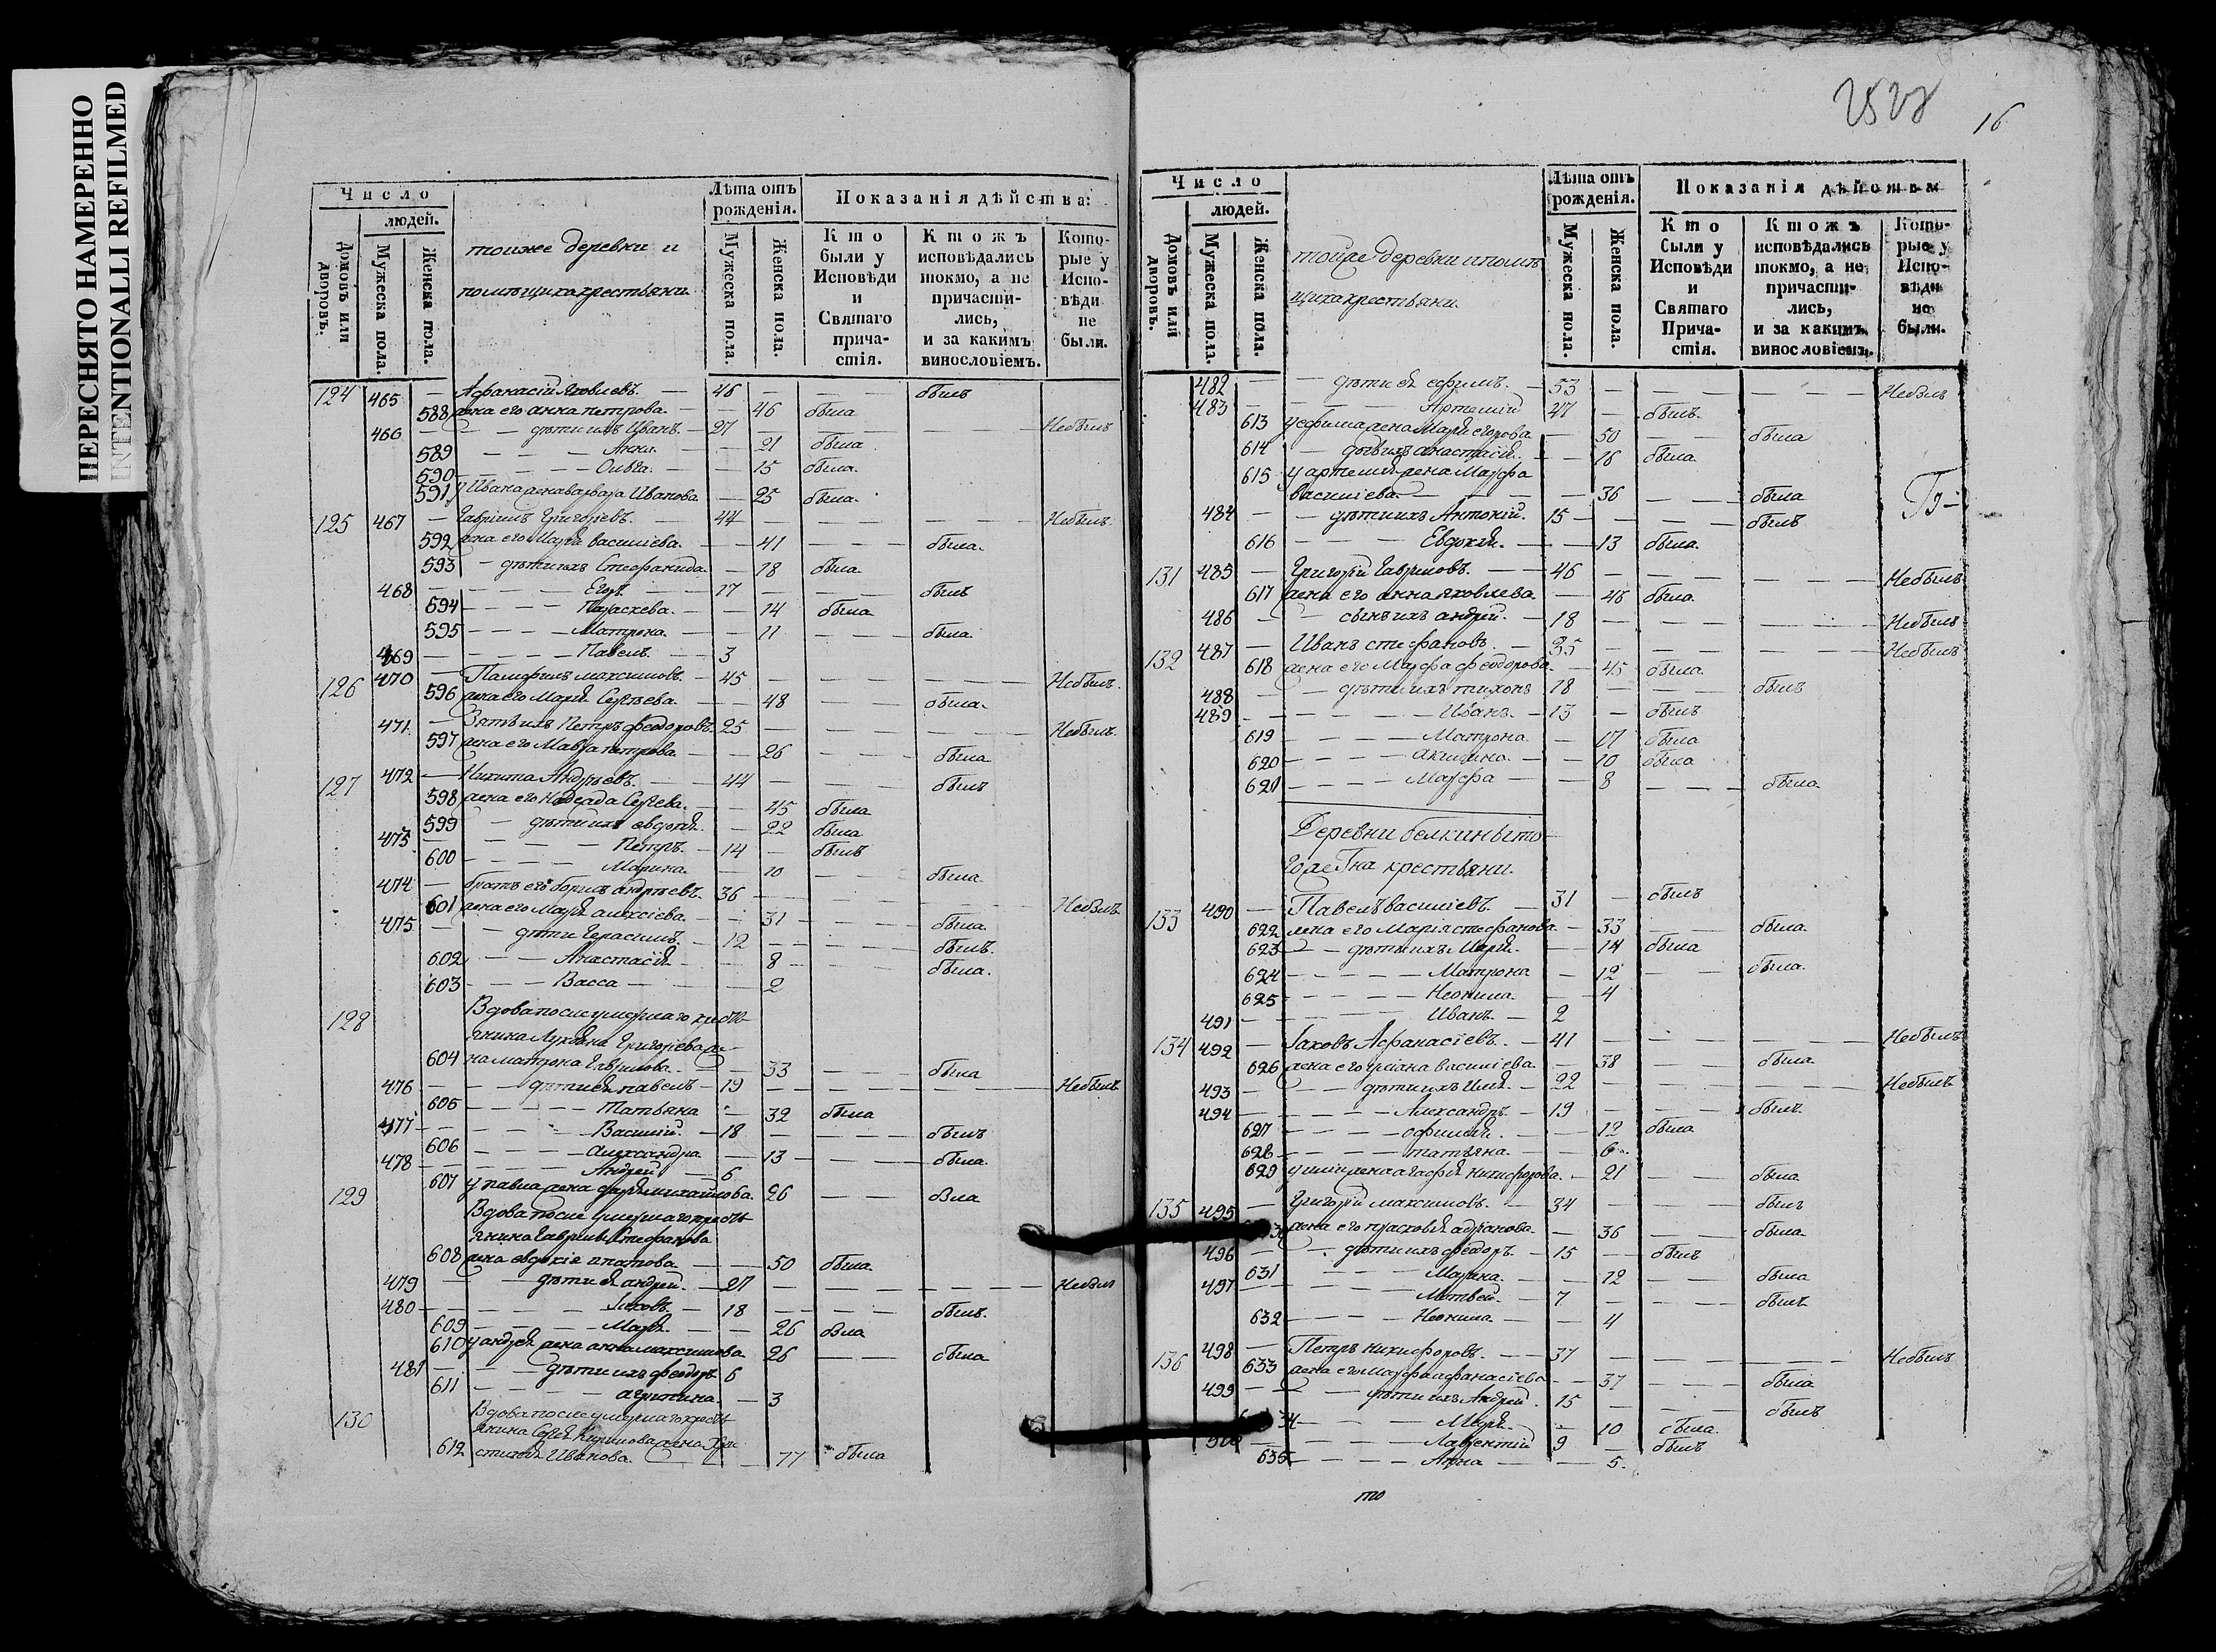 ПЕРЕСНЯТО НАМЕРЕННО
INTENTIONALLI REFILMED
Число
людей.
Домовъ или дворовъ.
Мужеска пола.
Женска пола.
тоиже деревни и
помѣщика крестьяни
Лѣта отъ рожденія.
Мужеска пола.
Женска пола.
Показанія дѣйства:
Кто были у Исповѣди и Святаго причастія.
Ктожъ исповѣдались токмо, а не причастились, и за какимъ винословіемъ.
Которые у Исповѣди не были.
124 465 — Афанасій Яковлевъ. — 46 — — — былъ
588 жена его анна петрова — — 46 была
466 — — дѣти ихъ Иванъ. — 27 — — — Небылъ
589 — — — Анна. — — 21 была
590 — — — — Ольга. — — 15 была.
591 у Ивана жена варвара Иванова — 25 была.
125 467 — Гаврiилъ Григорiевъ. — 44 — — — Небылъ.
592 жена его Марiя василiева. — — 41 — — была.
593 — дѣти ихъ Стефанида. — 18 была
468 — — — — Егоръ — — 17 — — — былъ
594 — — — Параскева. — — 14 была
595 — — — — Матрона. — — 11 — — — была
469 — — — — — Павелъ. — — 3
126 470 — Памфилъ максимовъ. — 45 — — — Небылъ.
596 жена его Марiя Сергѣева. — — 48 — — была.
471 — Зять ихъ Петръ феодоровъ 25 — — — Небылъ.
597 жена его Мавра петрова — — 26 — — была
127 472 — Никита Андрѣевъ. — — 44 — — — былъ
598 жена его Надежда Сергѣева. — — 45 была
599 — дѣти ихъ евдокiя. — 22 была
473 — — — — — Петръ. — 14 — былъ
600 — — — — Марина. — — 10 — — была
474 — братъ его борисъ андрѣевъ. 36 — — — Небылъ
601 жена его Марiя алексiева. — — 31 — — была
475 — — дѣти Герасимъ. — 12 — — — былъ.
602 — — — Анастасiя — — 8 — — — была.
603 — — — Васса — — — 2
128 Вдова после умершаго кресть
янина Лукiяна Григорiева же
604 на матрона Гаврилова. — 33 — — была
476 — — дѣти ея павелъ — 19 — — — Небылъ
605 — — — — — Татьяна — 32 была
477 — — — — — Василiй. — 18 — — — былъ
606 — — — — — Александра — 13 — — — была.
478 — — — — — Андрей — 6
607 у павла жена дарья михайлова. 26 — — вла
129 Вдова после умершаго кресть
янина Гаврила Стефанова
608 жена евдокiя ипатова — — 50 была
479 — — дѣти ея андрей. — 27 — — — Небылъ
480 — — — — — Яковъ. — 18 — — — былъ.
609 — — — — — Марiя. — — 26 вла
610 у андрея жена анна максимова 26 — — была
481 — — — дѣти ихъ феодоръ 6
611 — — — — — агрипина. — 3
130 Вдова после умершаго кресть
янина Сергѣя Кирилова жена Хри
612 стина Иванова. — — — 77 была
2528
16
Число
людей.
Домовъ или дворовъ.
Мужеска пола.
Женска пола.
тойже деревни и помѣ
щика крестьяни
Лѣта отъ рожденія.
Мужеска пола.
Женска пола.
Показанія дѣйства
Кто были у Исповѣди и Святаго Причастія.
Ктожъ исповѣдались токмо, а не причастились, и за какимъ винословіемъ.
Которые у Исповѣди не были.
482 — — дѣти ея ефимъ. — 53 — — — Небылъ
483 — — — — — Артемiй 47 — былъ
613 у ефима жена Марiя егорова — 50 — — была
614 — — дочь ихъ анастасiя. — — 16 была
615 у артемiя жена Марфа
василiева. — — — — 36 — — была
484 — — дѣти ихъ Антонiй. 15 — — — былъ
616 — — — Евдокiя. — — 13 была.
131 485 — Григорiй Гавриловъ. — — 46 — — — Небылъ
617 жена его анна яковлева. — 48 была.
486 — — сынъ ихъ андрей. — 18 — — — Небылъ
132 487 — Иванъ стефановъ. — 35 — — — Небылъ
618 жена его Марфа феодорова. — 45 была.
488 — — дѣти ихъ тихонъ 18 — — былъ
489 — — — — — Иванъ. — 13 — былъ
619 — — — — Матрона. — 17 была
620 — — — — акилина. — — 10 была
621 — — — Марфа — — 8 — — была.
Деревни белкины то
гоже Гна крестьяни.
133 490 — Павелъ василiевъ. — 31 — былъ
622 жена его Марiя стефанова. — 33 — была.
623 — дѣти ихъ Марiя. — 14 была
624 — — — — Матрона — 12 — — была.
625 — — — — Неонила. — — 4
491 — — — — — Иванъ. — 2
134 492 — Iаковъ Афанасiевъ. — 41 — — — Небылъ
626 жена его улiана василiева. — 38 — — была
493 — — — дѣти ихъ Илья. — 22 — — — Небылъ
494 — — — — — Александръ. — 19 — — — былъ.
627 — — — — — офимiя. — — 12 была
628 — — — — — татьяна. — — 6
629 у ильи жена агафiя никифорова. — 21 — — была
135 495 — Григорiй максимовъ. — 34 — — былъ
жена его прасковья — 36 — — была.
496 — — дѣти ихъ феодоръ — 15 — былъ
631 — — — — Марина. — — 12 — — была
497 — — — — Матвей. — 7 — — — былъ
632 — — — — Неонила — — 4
136 498 — Петръ никифоровъ. — — 37 — — — Небылъ
633 жена его Марфа афанасiева — — 37 — — была
499 — — — дѣти ихъ Андрей. 15 — — — былъ
— — — — Марiя. — — 10 была.
— — — — Лаврентiй 9 — былъ
635 — — — — Анна — — 5.
то